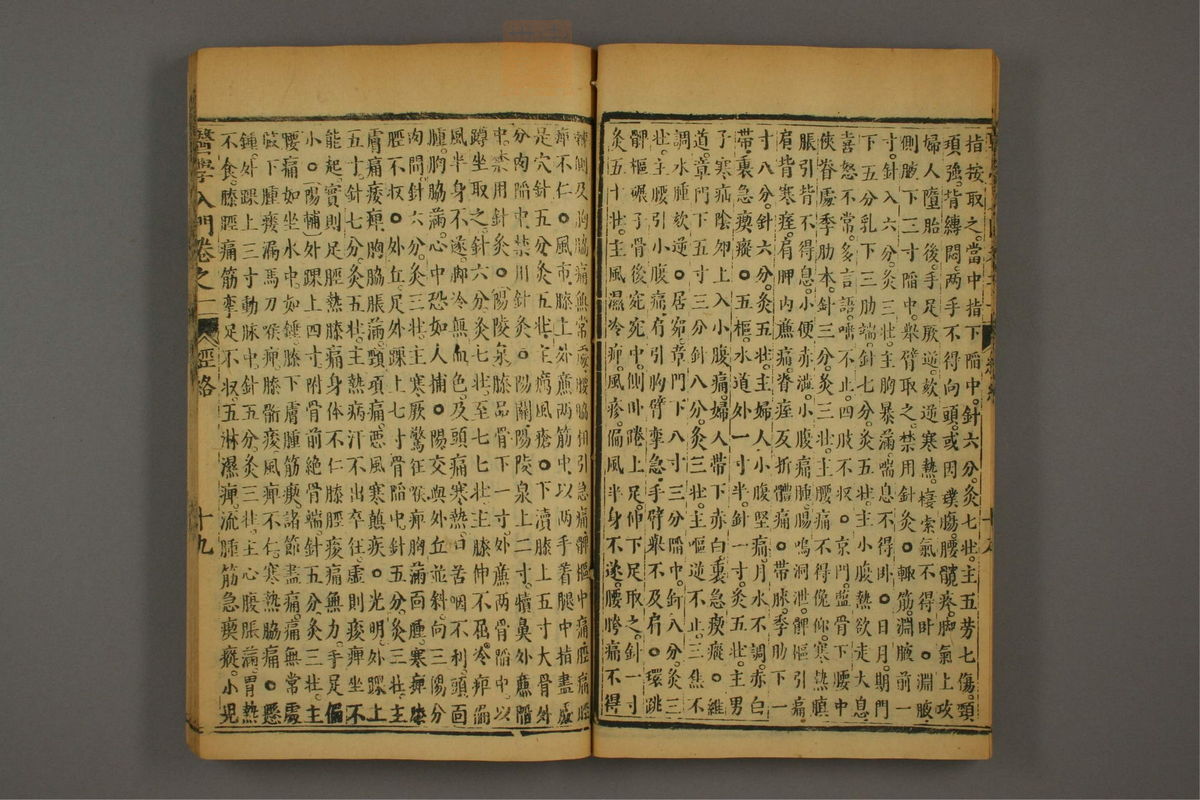 指按取之當中指下陷中。針六分。灸七壯。主五勞七傷。頸
項強。背縛悶。兩手不得向頭。或因撲傷。腰髖疼。脚氣上攻
婦人墮胎後。手足厥逆。欬逆寒熱。悽索氣不得卧。○淵腋
側腋下三寸陷中。舉臂取之。禁用針灸。○輒筋。淵腋前一
寸。針入六分。灸三壯。主胸暴滿。喘息不得卧。○日月。期門
下五分。乳下三肋端。針七分。灸五壯。主小腹熱欲走。大息
喜怒不常。多言語。唾不止。四肢不收。○京門。監骨下腰中
俠脊處季肋本。針三分。灸三壯。主腰痛不得俛仰。寒熱䐜
脹引背不得息。小便赤澁。小腹痛腫。腸鳴洞泄。髀樞引痛
肩背寒痓。肩胛內廉痛。脊痓反折體痛。○帶脉。季肋下一
寸八分。針六分。灸五壯。主婦人小腹堅痛。月水不調。赤白
帶。裏急瘈瘲。○五樞。水道外一寸半。針一寸。灸五壯。主男
子寒疝。陰卵上入小腹痛。婦人帶下赤白。裏急瘈瘲。○維
道。章門下五寸三分。針八分。灸三壯。主嘔逆不止。三焦不
調。水腫。欬逆。○居窌。章門下八寸三分陷中。針八分。灸三
壯。主腰引小腹痛。肩引胸臂攣急。手臂舉不及肩。○環跳
髀樞碾子骨後宛宛中。側卧踡上足。伸下足取之。針一寸
灸五十壯。主風濕冷痹。風疹。偏風半身不遂。腰胯痛不得
轉側。及胸脇痛無常處。腰脇相引急痛。髀樞中痛。腰痛脛
痹不仁。○風市。膝上外廉兩筋中。以兩手着腿。中指盡處
是穴。針五分。灸五壯。主癘風瘡。○下瀆。膝上五寸大骨外
分肉陷中。禁用針灸。○陽關。陽陵泉上二寸。犢鼻外廉陷
中。禁用針灸。○陽陵泉。膝品骨下一寸。外廉兩骨陷中。以
蹲坐取之。針六分。灸七壯。至七七壯。主膝伸不屈。冷痹偏
風半身不遂。脚冷無血色。及頭痛寒熱。口苦咽不利。頭面
腫。胸脇滿。心中恐如人捕。○陽交。與外丘並斜向三陽分
肉間。針六分。灸三壯。主寒厥驚狂。喉痹。胸滿面腫。寒痹膝
脛不收。○外丘。足外踝上七寸骨陷中。針五分。灸三壯。主
膚痛痿痹。胸脇脹滿。頸項痛。惡風寒。㿗疾。○光明。外踝上
五寸。針七分。灸五壯。主熱病汗不出。卒狂。虛則痿痹坐不
能起。實則足脛熱膝痛。身体不仁。膝脛痠痛無力。手足偏
小。○陽輔。外踝上四寸。附骨前絕骨端。針五分。灸三壯。主
腰痛如坐水中。如錘。膝下膚腫筋瘈。諸節盡痛。痛無常處
腋下腫瘻漏。馬刀喉痹。膝胻痠。風痹不仁。寒熱脇痛。○懸
鍾。外踝上三寸動脉中。針五分。灸三壯。主心腹脹滿。胃熱
不食。膝脛痛。筋攣足不收。五淋。濕痹。流腫。筋急瘈瘲。小兒
醫學入門卷之一 經絡 十九